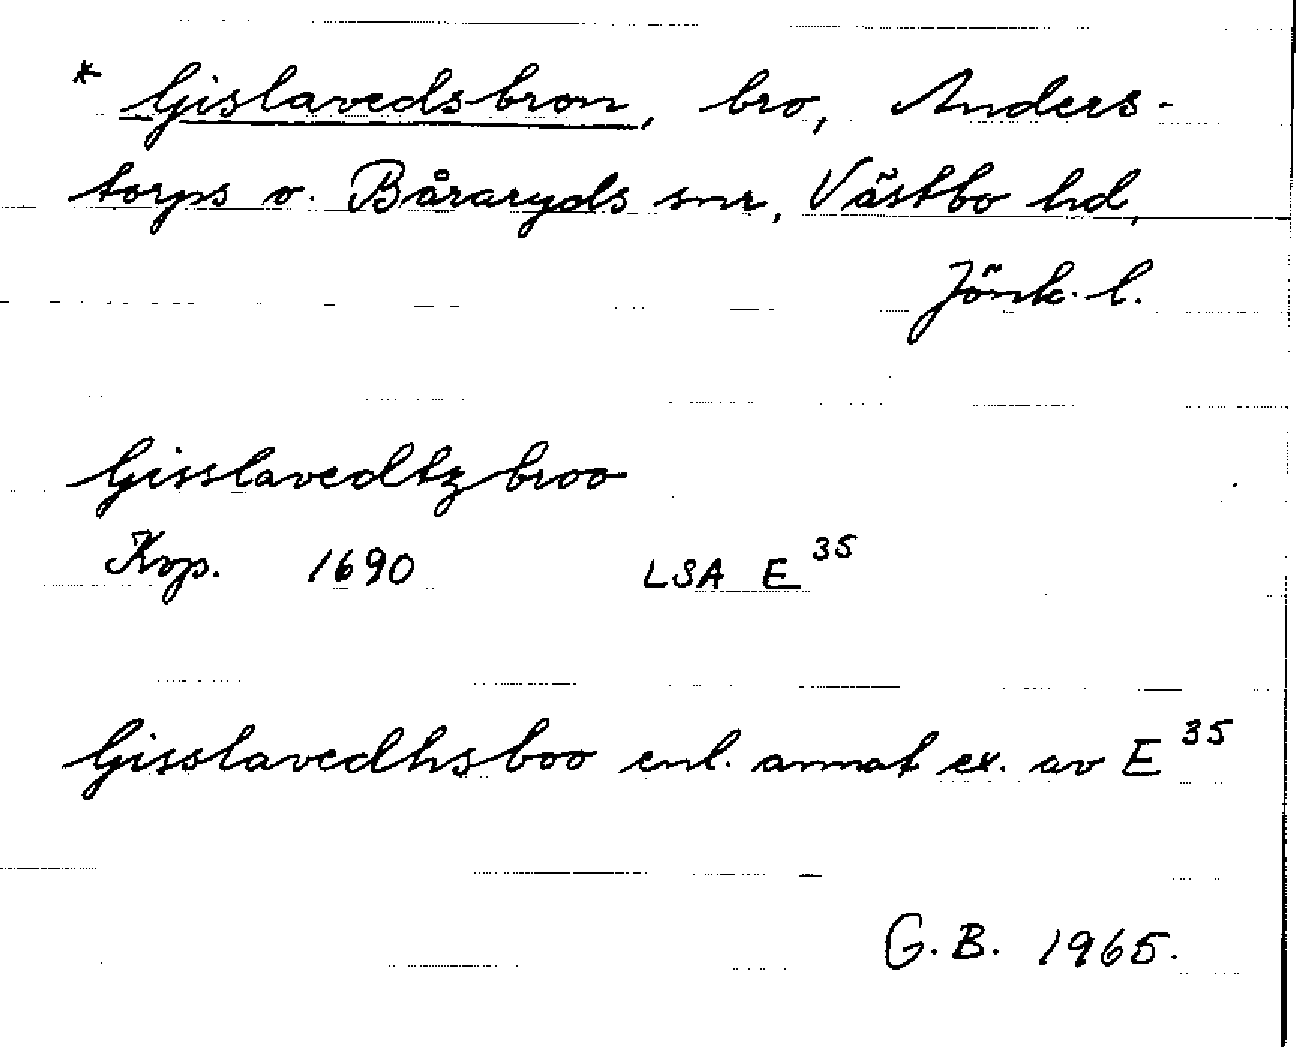 * Gislavedsbron, bro, Anders-
torps o. Båraryds snr, Västbo hd,
Jönk. l.
Gisslavedtz broo
Krp. 1690 LSA E 35
Gisslavedhs boo enl. annat ex. av E 35
G. B. 1965.